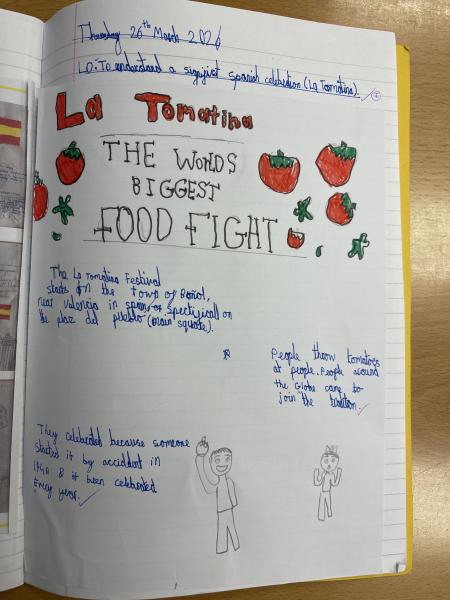 Thursday 26th March 2026
LO: To understand a signifist spanish celebration (La Tomatina).
La Tomatina
THE WORLDS
BIGGEST
FOOD FIGHT
The La Tomatina Festival
starts in the town of Buñol,
near valencia in spain, spectifically on
the plaz del pueblo (main square).
People throw tomatoes
at people. People around
the Globe came to
join the tradition.
They celebrated because someone
started it by accident in
& it been celebrated
Every year.